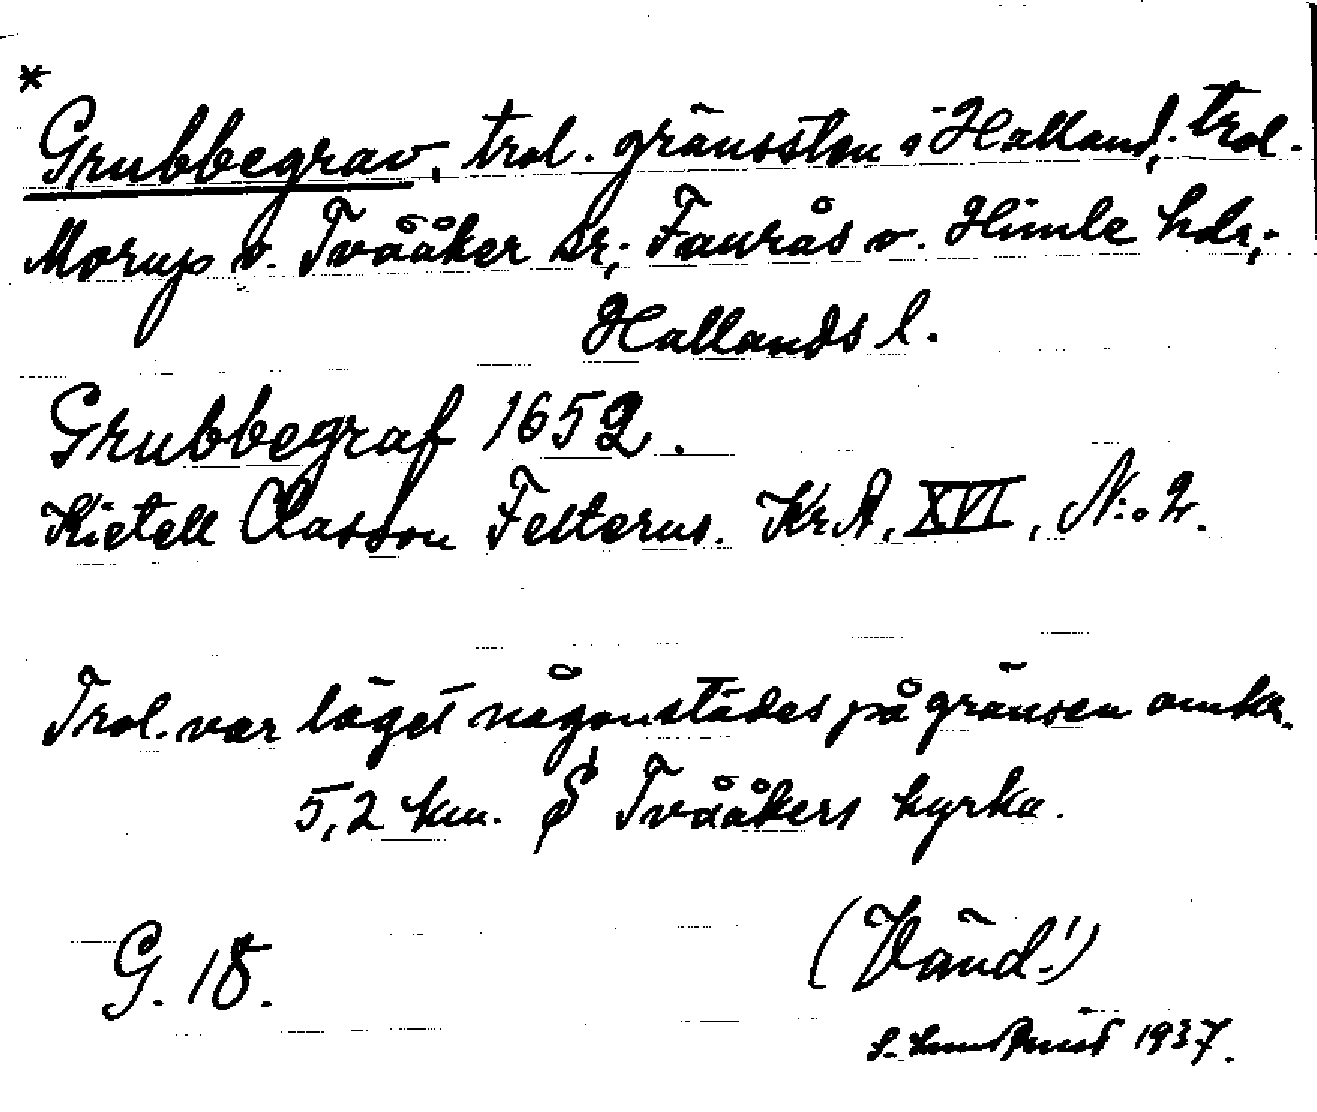 *
Grubbegrav, trol. gränssten i Halland, trol.
Morup o. Tvååker sr, Faurås o. Himle hdr,
Hallands l.
Grubbegraf 1652.
Kietell Classon Felterus. KrA, XVI, N:o 2.
Trol. var läget någonstädes på gränsen omkr.
5,2 km. S Tvååkers kyrka.
G. 18.
(Vänd!)
1937.